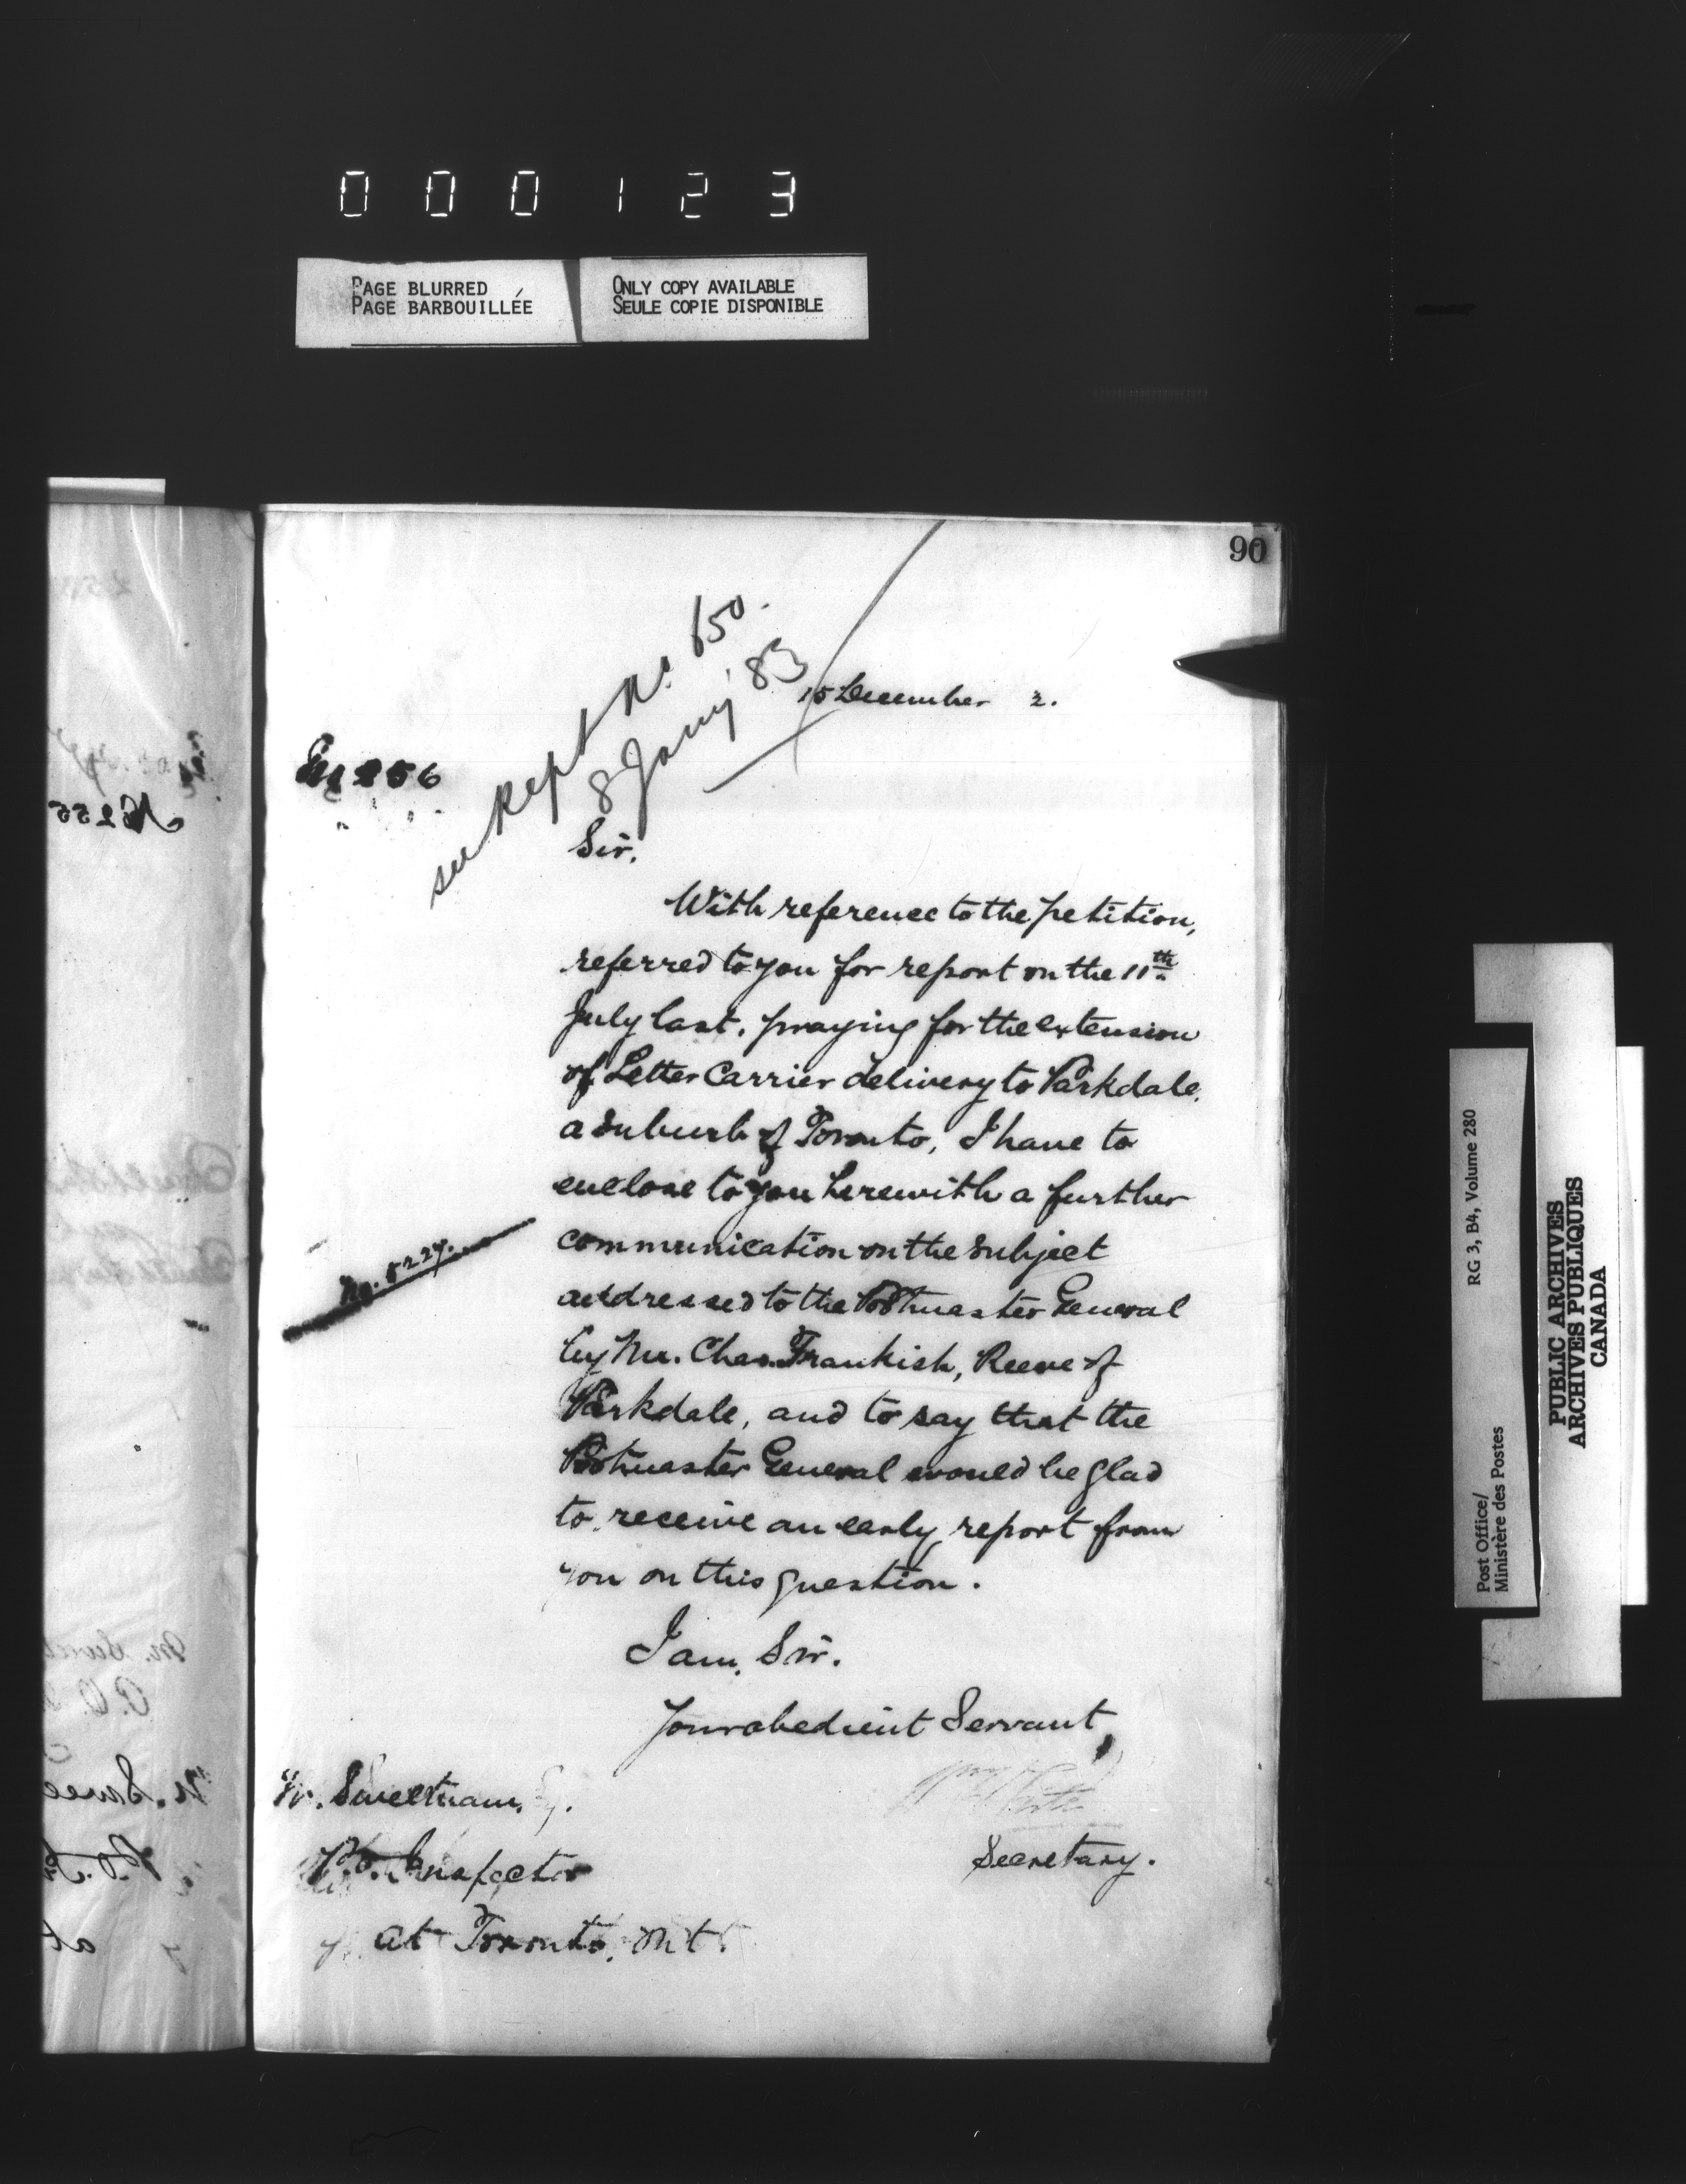 000123
PAGE BLURRED
PAGE BARBOUILLÉE
ONLY COPY AVAILABLE
SEULE COPIE DISPONIBLE
90
see Rept No. 650.
8 Jany' 83
15 December 2.
256
Sir,
With reference to the petition,
referred to you for report on the 11th
July last, praying for the extension
of Letter Carrier delivery to Parkdale,
a suburb of Toronto, I have to
enclose to you herewith a further
communication on the subject
No. 5227.
addressed to the Postmaster General
by Mr. Chas. Frankish, Reeve of
Parkdale, and to say that the
Postmaster General would be glad
to receive an early report from
you on this question.
I am, Sir.
Your obedient Servant,
Sweetnam, Esq.
Secretary.
P.O. Inspector
at Toronto, Ont.
RG 3, B4, Volume 280
Post Office/
Ministère des Postes
PUBLIC ARCHIVES
ARCHIVES PUBLIQUES
CANADA